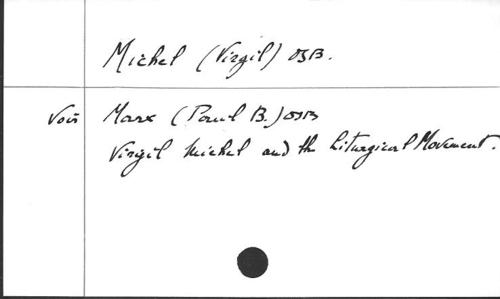 Michel (Virgil) OSB.
Voir Marx (Paul B.) OSB
Virgil Michel and the Liturgical Movement.